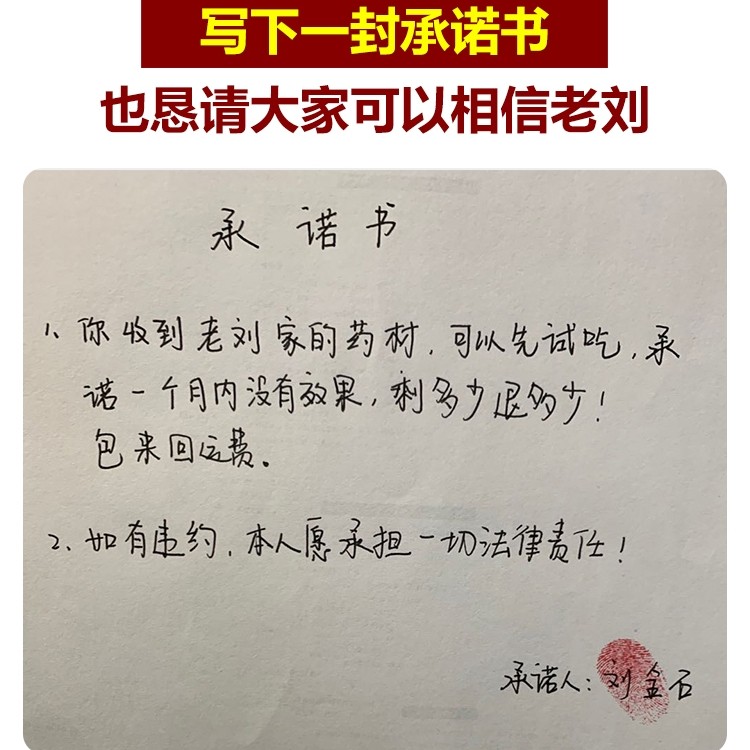 写下一封承诺书
也恳请大家可以相信老刘
承诺书
1、你收到老刘家的药材，可以先试吃，承
诺一个月内没有效果，剩多少退多少！
包来回运费。
2、如有违约，本人愿承担一切法律责任！
承诺人：刘金石